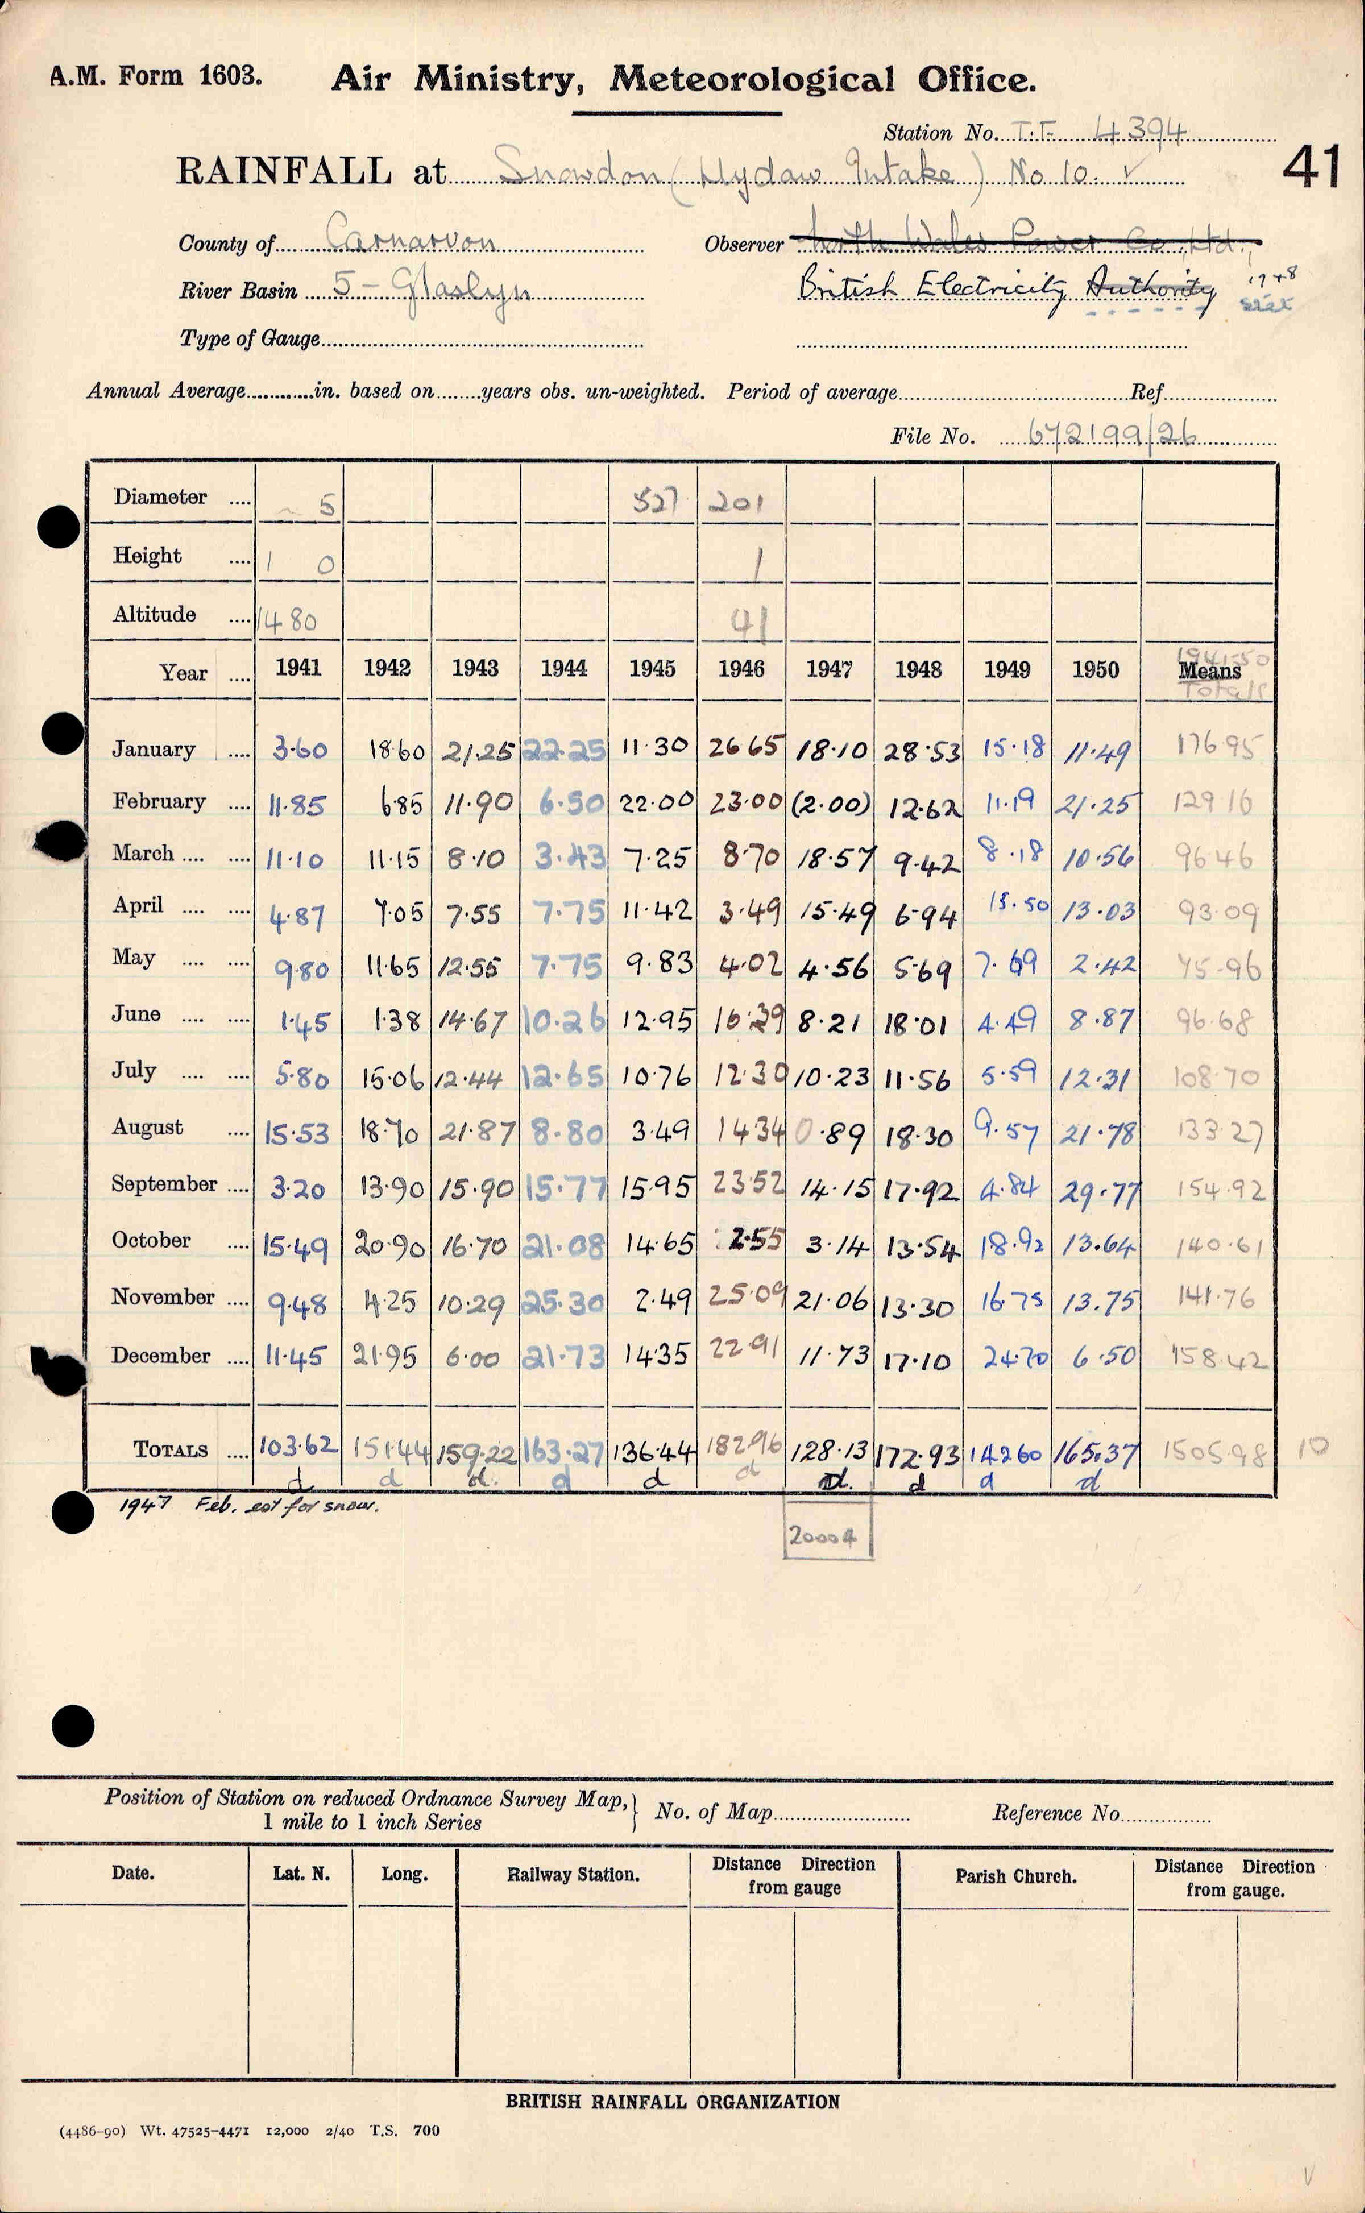 A.M. Form 1603. Air Ministry, Meteorological Office.
Station No. T.F. 4394
41
RAINFALL at Snowdon (Llydaw Intake) No 10. ✓
County of Carnarvon Observer North Wales Power Co. Ltd.,
River Basin 5 - Glaslyn British Electricity Authority 1948
Type of Gauge
Annual Average in. based on years obs. un-weighted. Period of average Ref.
File No. 672199/26
Diameter 5 527 201
Height 1 0 1
Altitude 1480 41
Year 1941 1942 1943 1944 1945 1946 1947 1948 1949 1950 1941-50 Means Totals
January 3.60 18.60 21.25 22.25 11.30 26.65 18.10 28.53 15.18 11.49 176.95
February 11.85 6.85 11.90 6.50 22.00 23.00 (2.00) 12.62 11.19 21.25 129.16
March 11.10 11.15 8.10 3.43 7.25 8.70 18.57 9.42 8.18 10.56 96.46
April 4.87 7.05 7.55 7.75 11.42 3.49 15.49 6.94 15.50 13.03 93.09
May 9.80 11.65 12.55 7.75 9.83 4.02 4.56 5.69 7.69 2.42 75.96
June 1.45 1.38 14.67 10.26 12.95 16.39 8.21 18.01 4.49 8.87 96.68
July 5.80 15.06 12.44 12.65 10.76 12.30 10.23 11.56 5.59 12.31 108.70
August 15.53 18.70 21.87 8.80 3.49 14.34 0.89 18.30 9.57 21.78 133.27
September 3.20 13.90 15.90 15.77 15.95 23.52 14.15 17.92 4.84 29.77 154.92
October 15.49 20.90 16.70 21.08 14.65 2.55 3.14 13.54 18.92 13.64 140.61
November 9.48 4.25 10.29 25.30 2.49 25.09 21.06 13.30 16.75 13.75 141.76
December 11.45 21.95 6.00 21.73 14.35 22.91 11.73 17.10 24.70 6.50 158.42
TOTALS 103.62 151.44 159.22 163.27 136.44 182.96 128.13 172.93 142.60 165.37 1505.98 10
d d d. d d d d. d d d
1947 Feb. est for snow.
20004
Position of Station on reduced Ordnance Survey Map, 1 mile to 1 inch Series No. of Map Reference No.
Date. Lat. N. Long. Railway Station. Distance Direction from gauge Parish Church. Distance Direction from gauge.
BRITISH RAINFALL ORGANIZATION
(4486-90) Wt. 47525-4471 12,000 2/40 T.S. 700